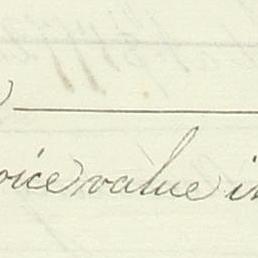 oice value in